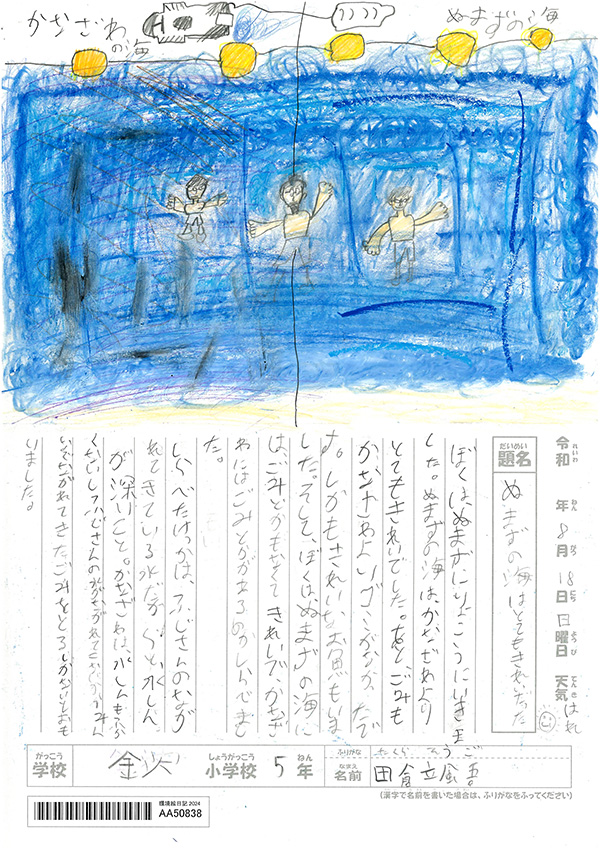 かなざわの海
ぬまずの海
令和 れいわ 年 ねん 8月 がつ 18日 にち 日曜日 ようび 天気 てんき はれ
だいめい
題名
ぬまずの海はとてもきれいだった
ぼくはぬまずにりょこうにいきま
した。ぬまずの海は、かなざわより
とてもきれいでした。あと、ごみも
かなざわより なかったで
す。しかもきれいなお もいま
した。そして、ぼくはぬまずの海に
はごみとかもなくてきれいで、かなざ
わにはごみとかがあるのかしらべまし
た。
しらべたけっかは、ふじさんのなが
れてきている水だからと水しん
が深いこと。かなざわは、水しんもふか
くないし ふじさんの水がながれてきてないからみん
なでながれてきたごみをとるしかないとおも
いました。
がっこう しょうがっこう ねん ふりがな たくら そうご
学校 金沢 小学校 5年 なまえ 名前 田倉颯吾
(漢字で名前を書いた場合は、ふりがなをふってください)
環境絵日記 2024
AA50838